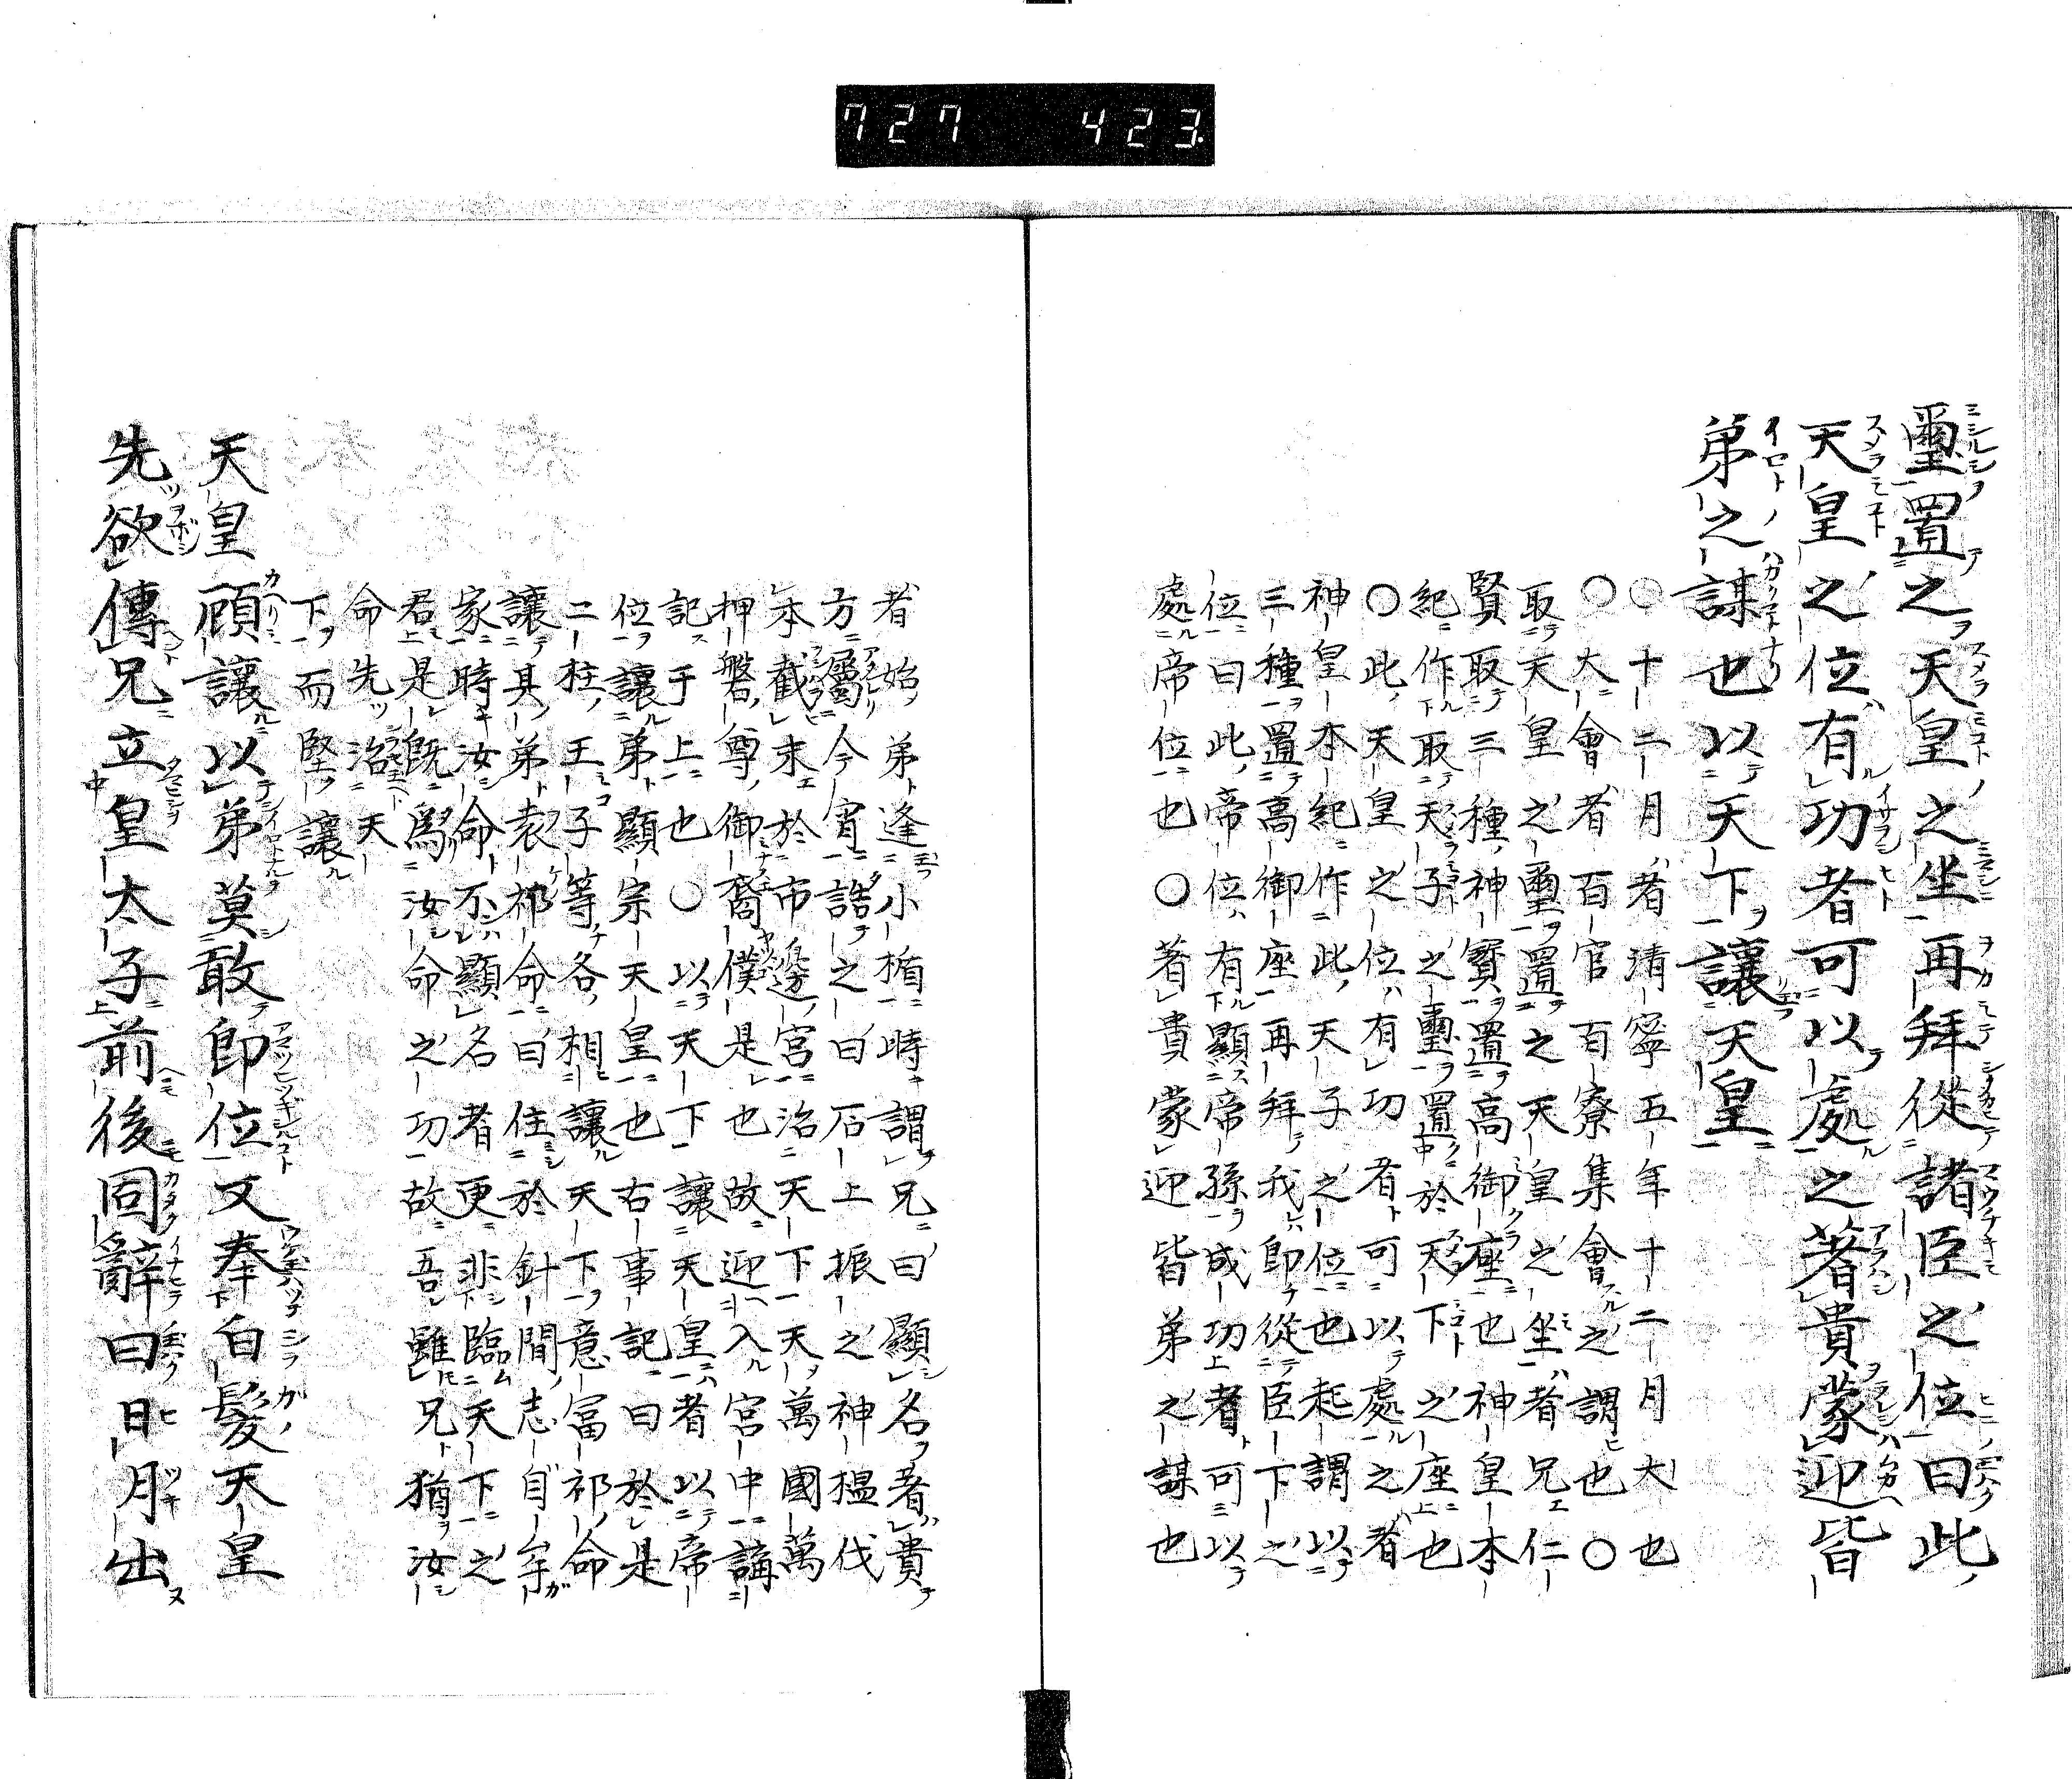 727 423
璽置之天皇之坐再拜從諸臣之位曰此
天皇之位有功者可以處之著貴蒙迎皆
弟之謀也以天下讓天皇
○十二月者清寧五年十二月大也
○大會者百官百寮集會之謂也○
取天皇之璽置之天皇之坐者兄仁
賢取三種神寶置高御座也神皇本
紀作取天子之璽置於天下之座也
○此天皇之位有功者可以處之者
神皇本紀作此天子之位也起謂以
三種置高御座再拜我即從臣下之
位曰此帝位有顯帝孫成功者可以
處帝位也○著貴蒙迎皆弟之謀也
者始弟逢小楯時謂兄曰顯名著貴
方屬今宵誥之曰石上振之神榲伐
本截末於市邊宮治天下天萬國萬
押磐尊御裔僕是也故迎入宮中講
記于上也○以天下讓天皇者以帝
位讓弟顯宗天皇也右事記曰於是
二柱王子等各相讓天下意冨祁命
讓其弟袁祁命曰住於針間志自牟
家時汝命不顯名者更非臨天下之
君是既爲汝命之功故吾雖兄猶汝
命先治天
下而堅讓
天皇顧讓以弟莫敢即位又奉白髮天皇
先欲傳兄立皇太子前後固辭曰日月出